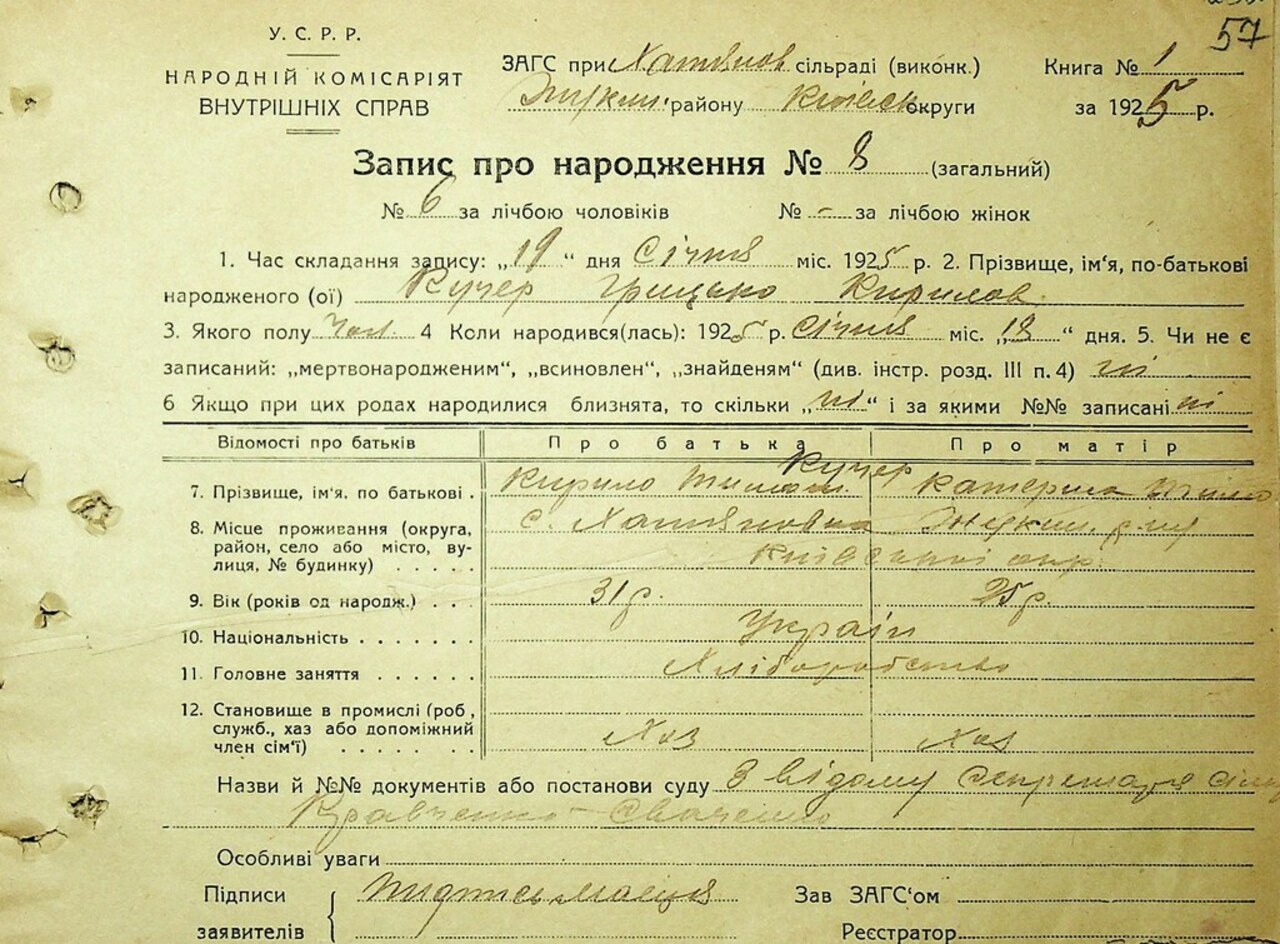 57
У. С. Р. Р.
НАРОДНІЙ КОМІСАРІЯТ
ВНУТРІШНІХ СПРАВ
ЗАГС при Хатянов сільраді (виконк.)
Жукин. району Київськ округи
Книга № 1
за 1925 р.
Запис про народження № 8 (загальний)
№ 6 за лічбою чоловіків № – за лічбою жінок
1. Час складання запису: „19“ дня Січня міс. 1925 р. 2. Прізвище, ім'я, по-батькові
народженого (ої) Кучер Грицько Кирилов.
3. Якого полу Чол. 4 Коли народився(лась): 1925 р. Січня міс. „18“ дня. 5. Чи не є
записаний: „мертвонародженим“, „всиновлен“, „знайденям“ (див. інстр. розд. III п. 4) ні
6 Якщо при цих родах народилися близнята, то скільки „ні“ і за якими №№ записані ні
Відомості про батьків Про батька Про матір
Кучер
7. Прізвище, ім'я, по батькові . Кирило Тимош. Катерина
8. Місце проживання (округа, с. Хатяновка Жукин. р-ну
район, село або місто, ву-
лиця, № будинку) . . . . . Київської окр.
9. Вік (років од народж.) . . . 31 р. 25 р.
10. Національність . . . . . . . Україн
11. Головне заняття . . . . . . Хліборобство
12. Становище в промислі (роб,
служб., хаз або допоміжний
член сім'ї) . . . . . . Хаз Хаз
Назви й №№ документів або постанови суду З відому Секретаря
Кравченко –
Особливі уваги
Підписи
заявителів
Зав ЗАГС'ом
Реєстратор